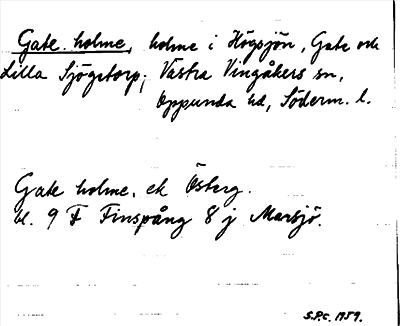 Gate holme, holme i Högsjön, Gate och
Lilla Sjögetorp; Västra Vingåkers sn,
Oppunda hd, Söderm. l.
Gate holme. ek Österg.
bl. 9 F Finspång 8 j Marsjö.
S.P.C. 1959.